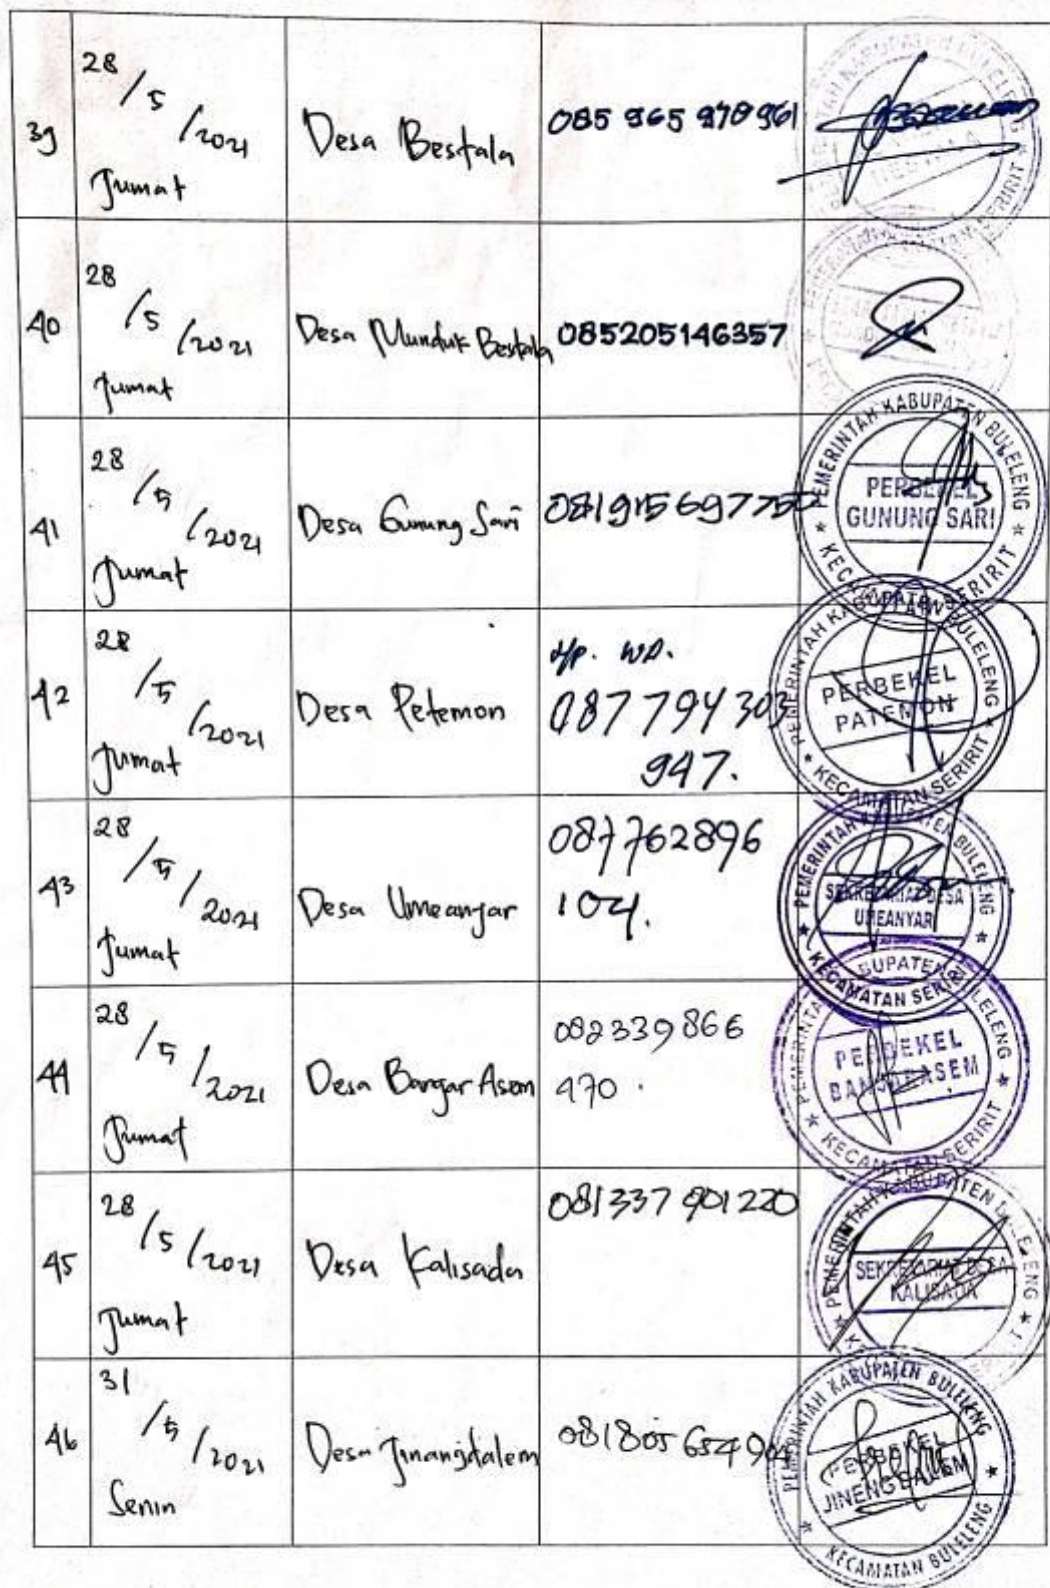 39
28
/5
/2021
Jumat
Desa Bestala
085 965 970 961
40
28
/5
/2021
Jumat
Desa Munduk Bestala
085205146357
41
28
/5
/2021
Jumat
Desa Gunung Sari
PEMERINTAH KABUPATEN BULELENG
PERBEKEL
GUNUNG SARI
KECAMATAN SERIRIT
42
28
/5
/2021
Jumat
Desa Petemon
Hp. WA.
087794303
947.
PEMERINTAH KABUPATEN BULELENG
PERBEKEL
PATEMON
KECAMATAN SERIRIT
43
28
/5
/2021
Jumat
Desa Umeanyar
087762896
104.
PEMERINTAH KABUPATEN BULELENG
SEKRETARIAT DESA
UMEANYAR
KECAMATAN SERIRIT
44
28
/5
/2021
Jumat
Desa Banjar Asem
082339866
470.
PEMERINTAH KABUPATEN BULELENG
PERBEKEL
BANJARASEM
KECAMATAN SERIRIT
45
28
/5
/2021
Jumat
Desa Kalisada
081337901220
PEMERINTAH KABUPATEN BULELENG
SEKRETARIAT DESA
KALISADA
46
31
/5
/2021
Senin
Desa Jinangdalem
081805654904
PEMERINTAH KABUPATEN BULELENG
PERBEKEL
JINENGDALEM
KECAMATAN BULELENG